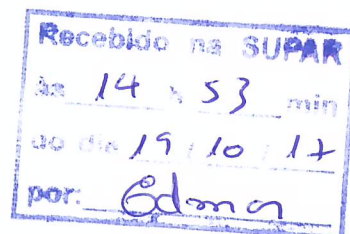 Recebido na SUPAR
às 14 h 53 min
do dia 19 / 10 / 17
por: Edma